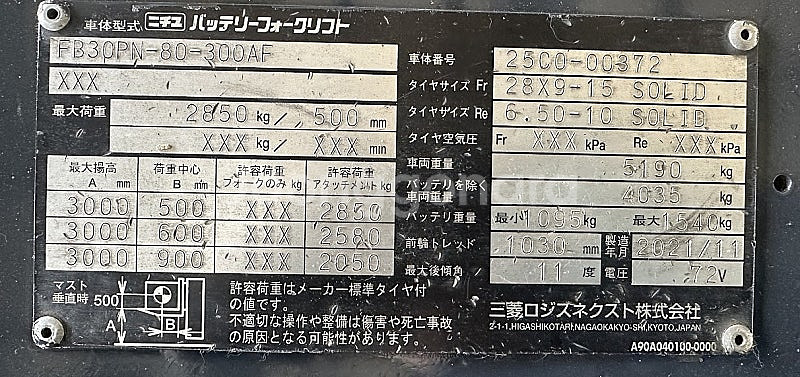 車体型式 ニチユ バッテリーフォークリフト
FB30PN-80-300AF
XXX
最大荷重 2850 kg/ 500 mm
XXX kg/ XXX mm
車体番号 25C0-00372
タイヤサイズ Fr 28X9-15 SOLID
タイヤサイズ Re 6.50-10 SOLID
タイヤ空気圧 Fr XXX kPa Re XXX kPa
車両重量 5190 kg
バッテリを除く車両重量 4035 kg
バッテリ重量 最小 1095 kg 最大 1540 kg
前輪トレッド 1030 mm 製造年月 2021/11
最大後傾角 11 度 電圧 72 V
最大揚高 A mm 荷重中心 B mm 許容荷重 フォークのみ kg 許容荷重 アタッチメント付 kg
3000 500 XXX 2850
3000 600 XXX 2580
3000 900 XXX 2050
マスト垂直時 500
A
B
許容荷重はメーカー標準タイヤ付
の値です。
不適切な操作や整備は傷害や死亡事故
の原因となる可能性があります。
三菱ロジスネクスト株式会社
2-1-1,HIGASHIKOTARI,NAGAOKAKYO-SHI,KYOTO,JAPAN
A90A040100-0000